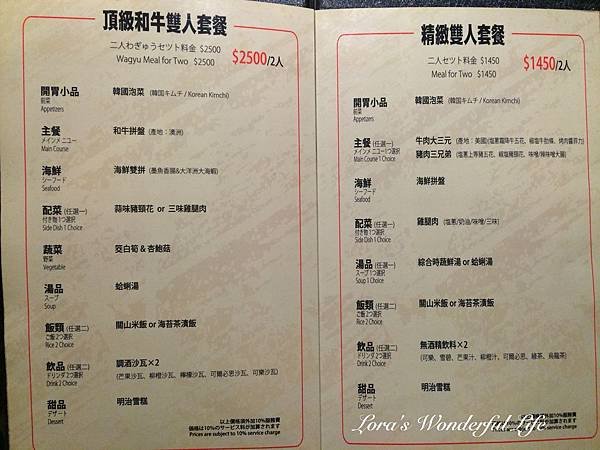 頂級和牛雙人套餐
二人わぎゅうセツト料金 $2500
Wagyu Meal for Two $2500
$2500/2人
開胃小品 韓國泡菜 (韓国キムチ / Korean Kimchi)
前菜
Appetizers
主餐 和牛拼盤 (產地：澳洲)
メインメニュー
Main Course
海鮮 海鮮雙拼 (墨魚香腸&大洋洲大海蝦)
シーフード
Seafood
配菜 (任選一) 蒜味豬頸花 or 三味雞腿肉
付き物1つ選択
Side Dish 1 Choice
蔬菜 筊白筍 & 杏鮑菇
野菜
Vegetable
湯品 蛤蜊湯
スープ
Soup
飯類 (任選二) 關山米飯 or 海苔茶漬飯
ご飯 2つ選択
Rice 2 Choice
飲品 (任選二) 調酒沙瓦×2
ドリンダ 2つ選択 (芒果沙瓦、柳橙沙瓦、檸檬沙瓦、可爾必思沙瓦、可樂沙瓦)
Drink 2 Choice
甜品 明治雪糕
デザート
Dessert
以上價格須外加10%服務費
価格は10%のサービス料が加算されます
Prices are subject to 10% service charge
精緻雙人套餐
二人セツト料金 $1450
Meal for Two $1450
$1450/2人
開胃小品 韓國泡菜 (韓国キムチ / Korean Kimchi)
前菜
Appetizers
主餐 (任選一) 牛肉大三元 (產地：美國)(塩蔥霜降牛五花、椒塩牛肋條、烤肉醬菲力)
メインメニュー1つ選択 豬肉三兄弟 (塩蔥上等豬五花、椒塩豬頸花、味噌/辣味噌大腸)
Main Course 1 Choice
海鮮 海鮮拼盤
シーフード
Seafood
配菜 (任選一) 雞腿肉 (塩蔥/奶油/味噌/三味)
付き物1つ選択
Side Dish 1 Choice
湯品 (任選一) 綜合時蔬鮮湯 or 蛤蜊湯
スープ 1つ選択
Soup 1 Choice
飯類 (任選二) 關山米飯 or 海苔茶漬飯
ご飯 2つ選択
Rice 2 Choice
飲品 (任選二) 無酒精飲料×2
ドリンダ 2つ選択 (可樂、雪碧、芒果汁、柳橙汁、可爾必思、綠茶、烏龍茶)
Drink 2 Choice
甜品 明治雪糕
デザート
Dessert
以上價格須外加10%服務費
価格は10%のサービス料が加算されます
Prices are subject to 10% service charge
Lora's Wonderful Life